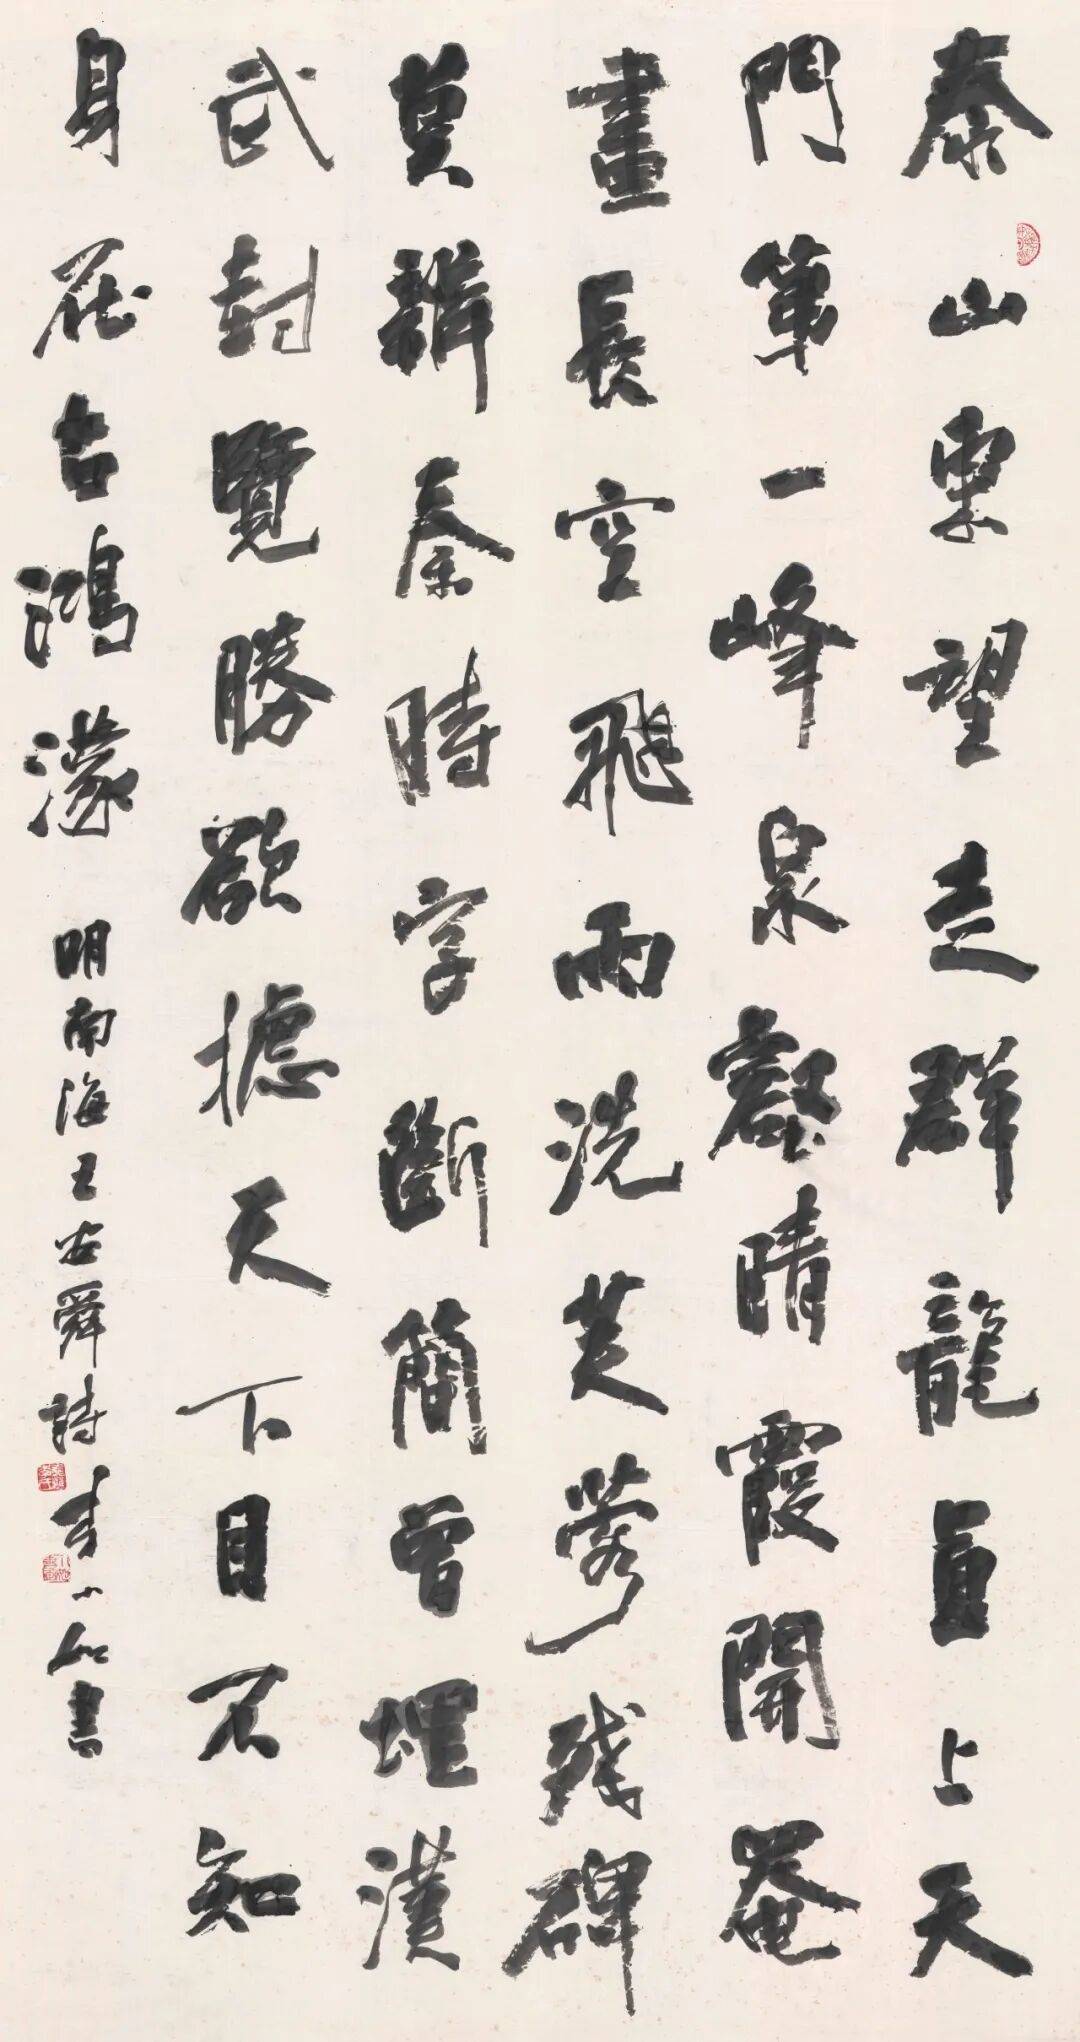 泰山東望走群龍直上天
門第一峰泉壑晴霞開罨
畫長空飛雨洗芙蓉残碑
莫辨秦時字斷簡曾埋漢
武封覽勝欲攄天下目不知
身在古鴻濛 明南海王安舜詩 李小如書